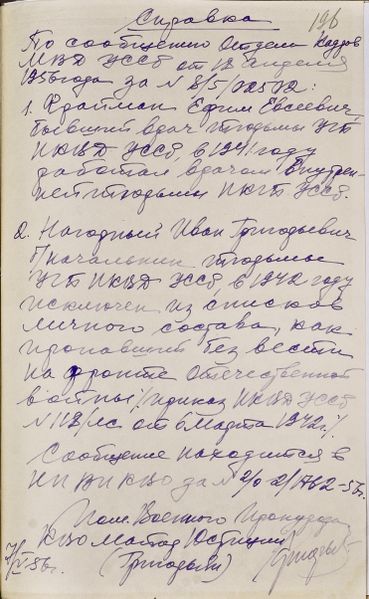 196
Справка
По сообщению Отдела Кадров
МВД УССР от 18 апреля
1956 года за N 8/5/
1. Фрайман Ефим Евсеевич,
бывший врач тюрьмы УГБ
НКВД УССР, в 1941 году
работал врачом Внутрен-
ней тюрьмы НКГБ УССР.
2. Нагорный Иван Григорьевич
б/начальник тюрьмы
УГБ НКВД УССР, в 1942 году
исключен из списков
личного состава, как
пропавший без вести
на фронте Отечественной
войны /приказ НКВД УССР
N 118/лс от 6 марта 1942 г/.
Сообщение находится в
НП ВП КВО за N 2/0
Пом. Военного Прокурора
КВО Майор Юстиции
(Григорьян)